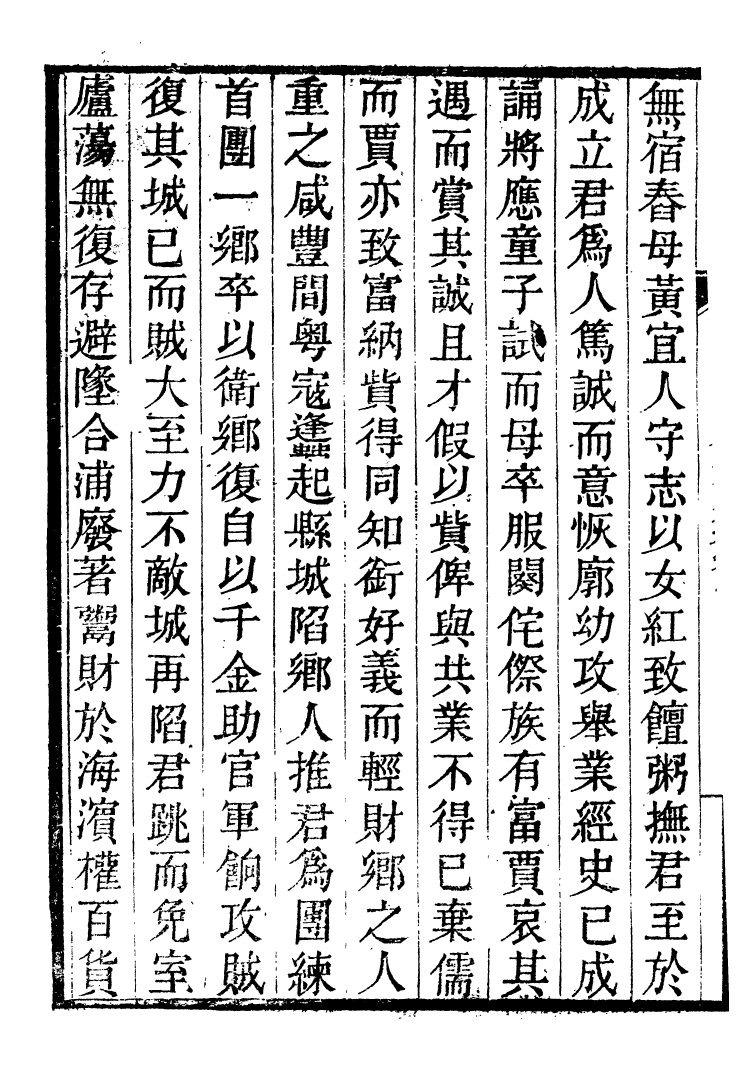 無宿舂母黃宜人守志以女紅致饘粥撫君至於
成立君爲人篤誠而意恢廓幼攻舉業經史已成
誦將應童子試而母卒服闋侘傺族有富賈哀其
遇而賞其誠且才假以貲俾與共業不得已棄儒
而賈亦致富納貲得同知銜好義而輕財鄉之人
重之咸豐間粤寇蠭起縣城陷鄉人推君爲團練
首團一鄉卒以衛鄉復自以千金助官軍餉攻賊
復其城已而賊大至力不敵城再陷君跳而免室
廬蕩無復存避墬合浦廢著鬻財於海濱權百貨